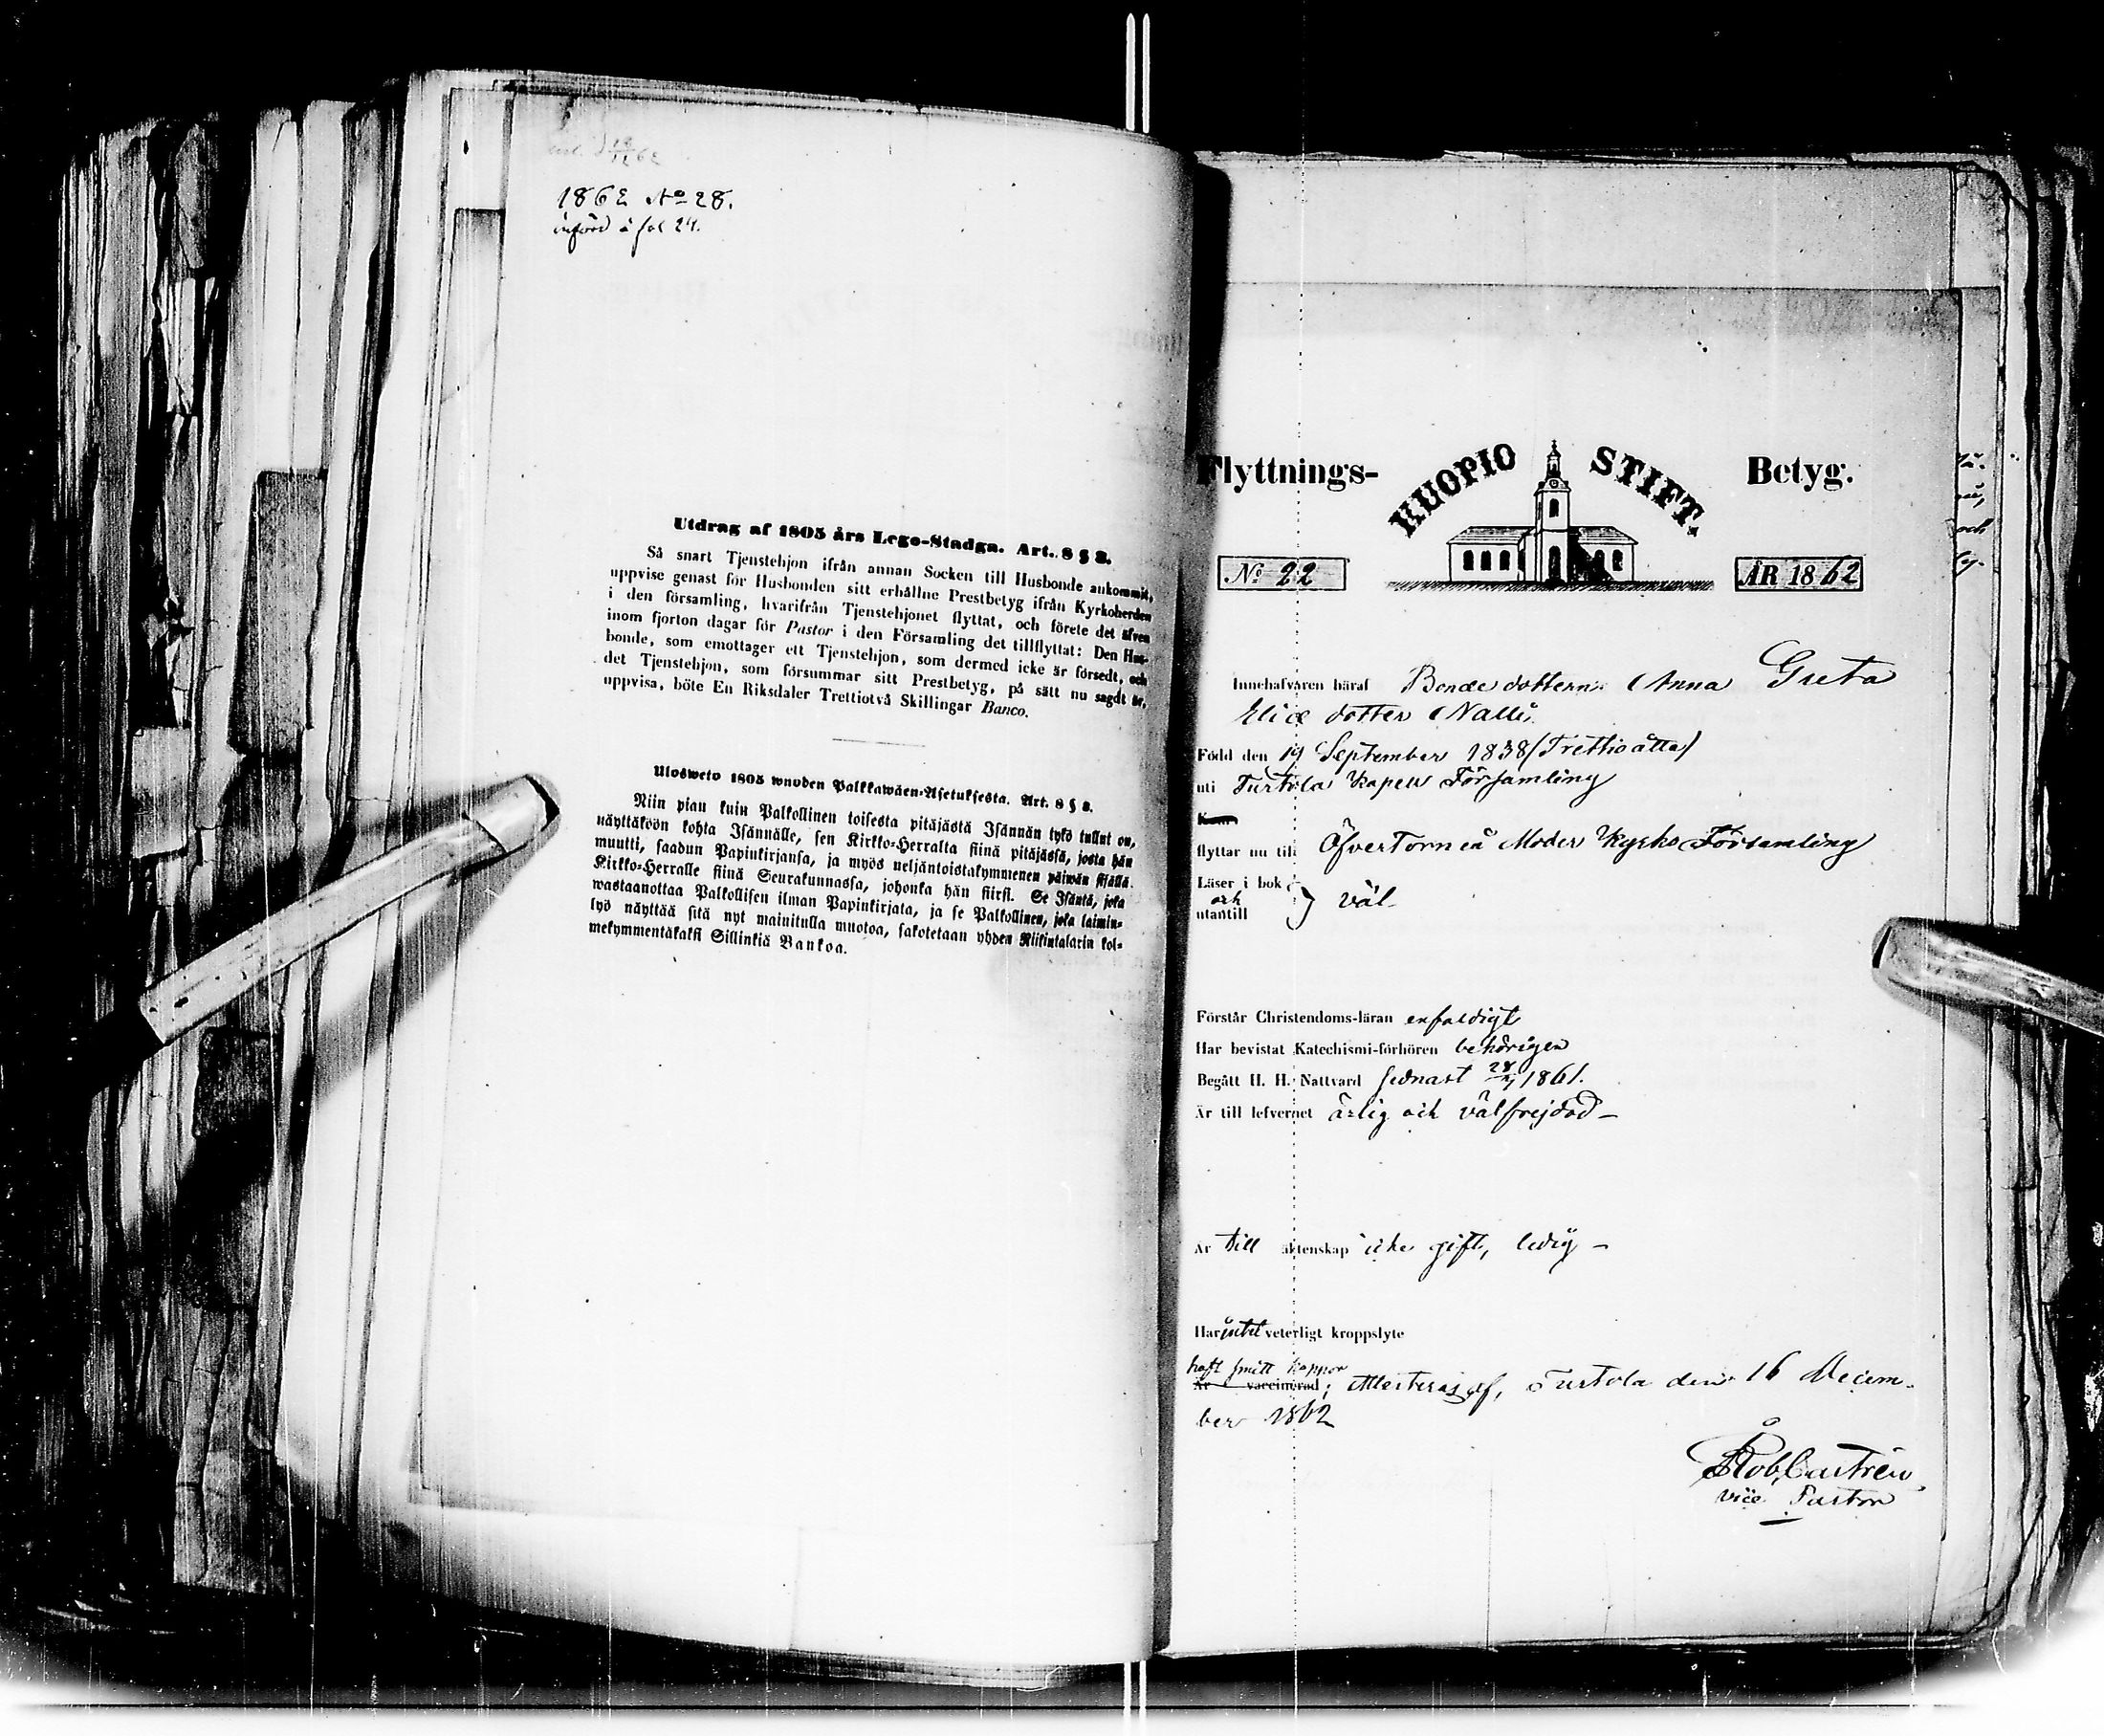 1862 No 28.
införd å fol 24.
Utdrag af 1805 års Lego-Stadga. Art. 8 § 3.
Så snart Tjenstehjon ifrån annan Socken till Husbonde ankommit,
uppvise genast för Husbonden sitt erhållne Prestbetyg ifrån Kyrkoherden
i den församling, hvarifrån Tjenstehjonet flyttat, och förete det äfven
inom fjorton dagar för Pastor i den Församling det tillflyttat: Den Hus-
bonde, som emottager ett Tjenstehjon, som dermed icke är försedt, och
det Tjenstehjon, som försummar sitt Prestbetyg, på sätt nu sagdt är,
uppvisa, böte En Riksdaler Trettiotvå Skillingar Banco.
Ulosweto 1805 wuoden Palkkawäen-Asetuksesta. Art. 8 § 3.
Niin pian kuin Palkollinen toisesta pitäjästä Isännän tykö tullut on,
näyttäköön kohta Isännälle, sen Kirkko-Herralta siinä pitäjässä, josta hän
muutti, saadun Papinkirjansa, ja myös neljäntoistakymmenen päiwän sisällä
Kirkko-Herralle siinä Seurakunnassa, johonka hän siirsi. Se Isäntä, joka
wastaanottaa Palkollisen ilman Papinkirjata, ja se Palkollinen, joka laimin-
lyö näyttää sitä nyt mainitulla muotoa, sakotetaan yhden Riikintalarin kol-
mekymmentäkaksi Sillinkiä Bankoa.
Flyttnings- HUOPIO STIFT. Betyg.
No 22 ÅR 1862
Innehafvaren häraf Bondedottern Anna Greta
Elise dotter Nalli
Född den 19 September 1838 (Trettioåtta)
uti Turtola Kapells Församling
Kom
flyttar nu till Öfvertorneå Moder Kyrko Församling
Läser i bok
och väl
utantill
Förstår Christendoms-läran enfaldigt
Har bevistat Katechismi-förhören behörigen
Begått H. H. Nattvard sednast 28/7 1861.
Är till lefvernet ärlig och välfrejdad –
Är till äktenskap icke gift, ledig –
Har intet veterligt kroppslyte
haft smitt koppor
Är vaccinerad; Attesteras af, Turtola den 16 Decem-
ber 1862
Rob Castrén
vice Pastor